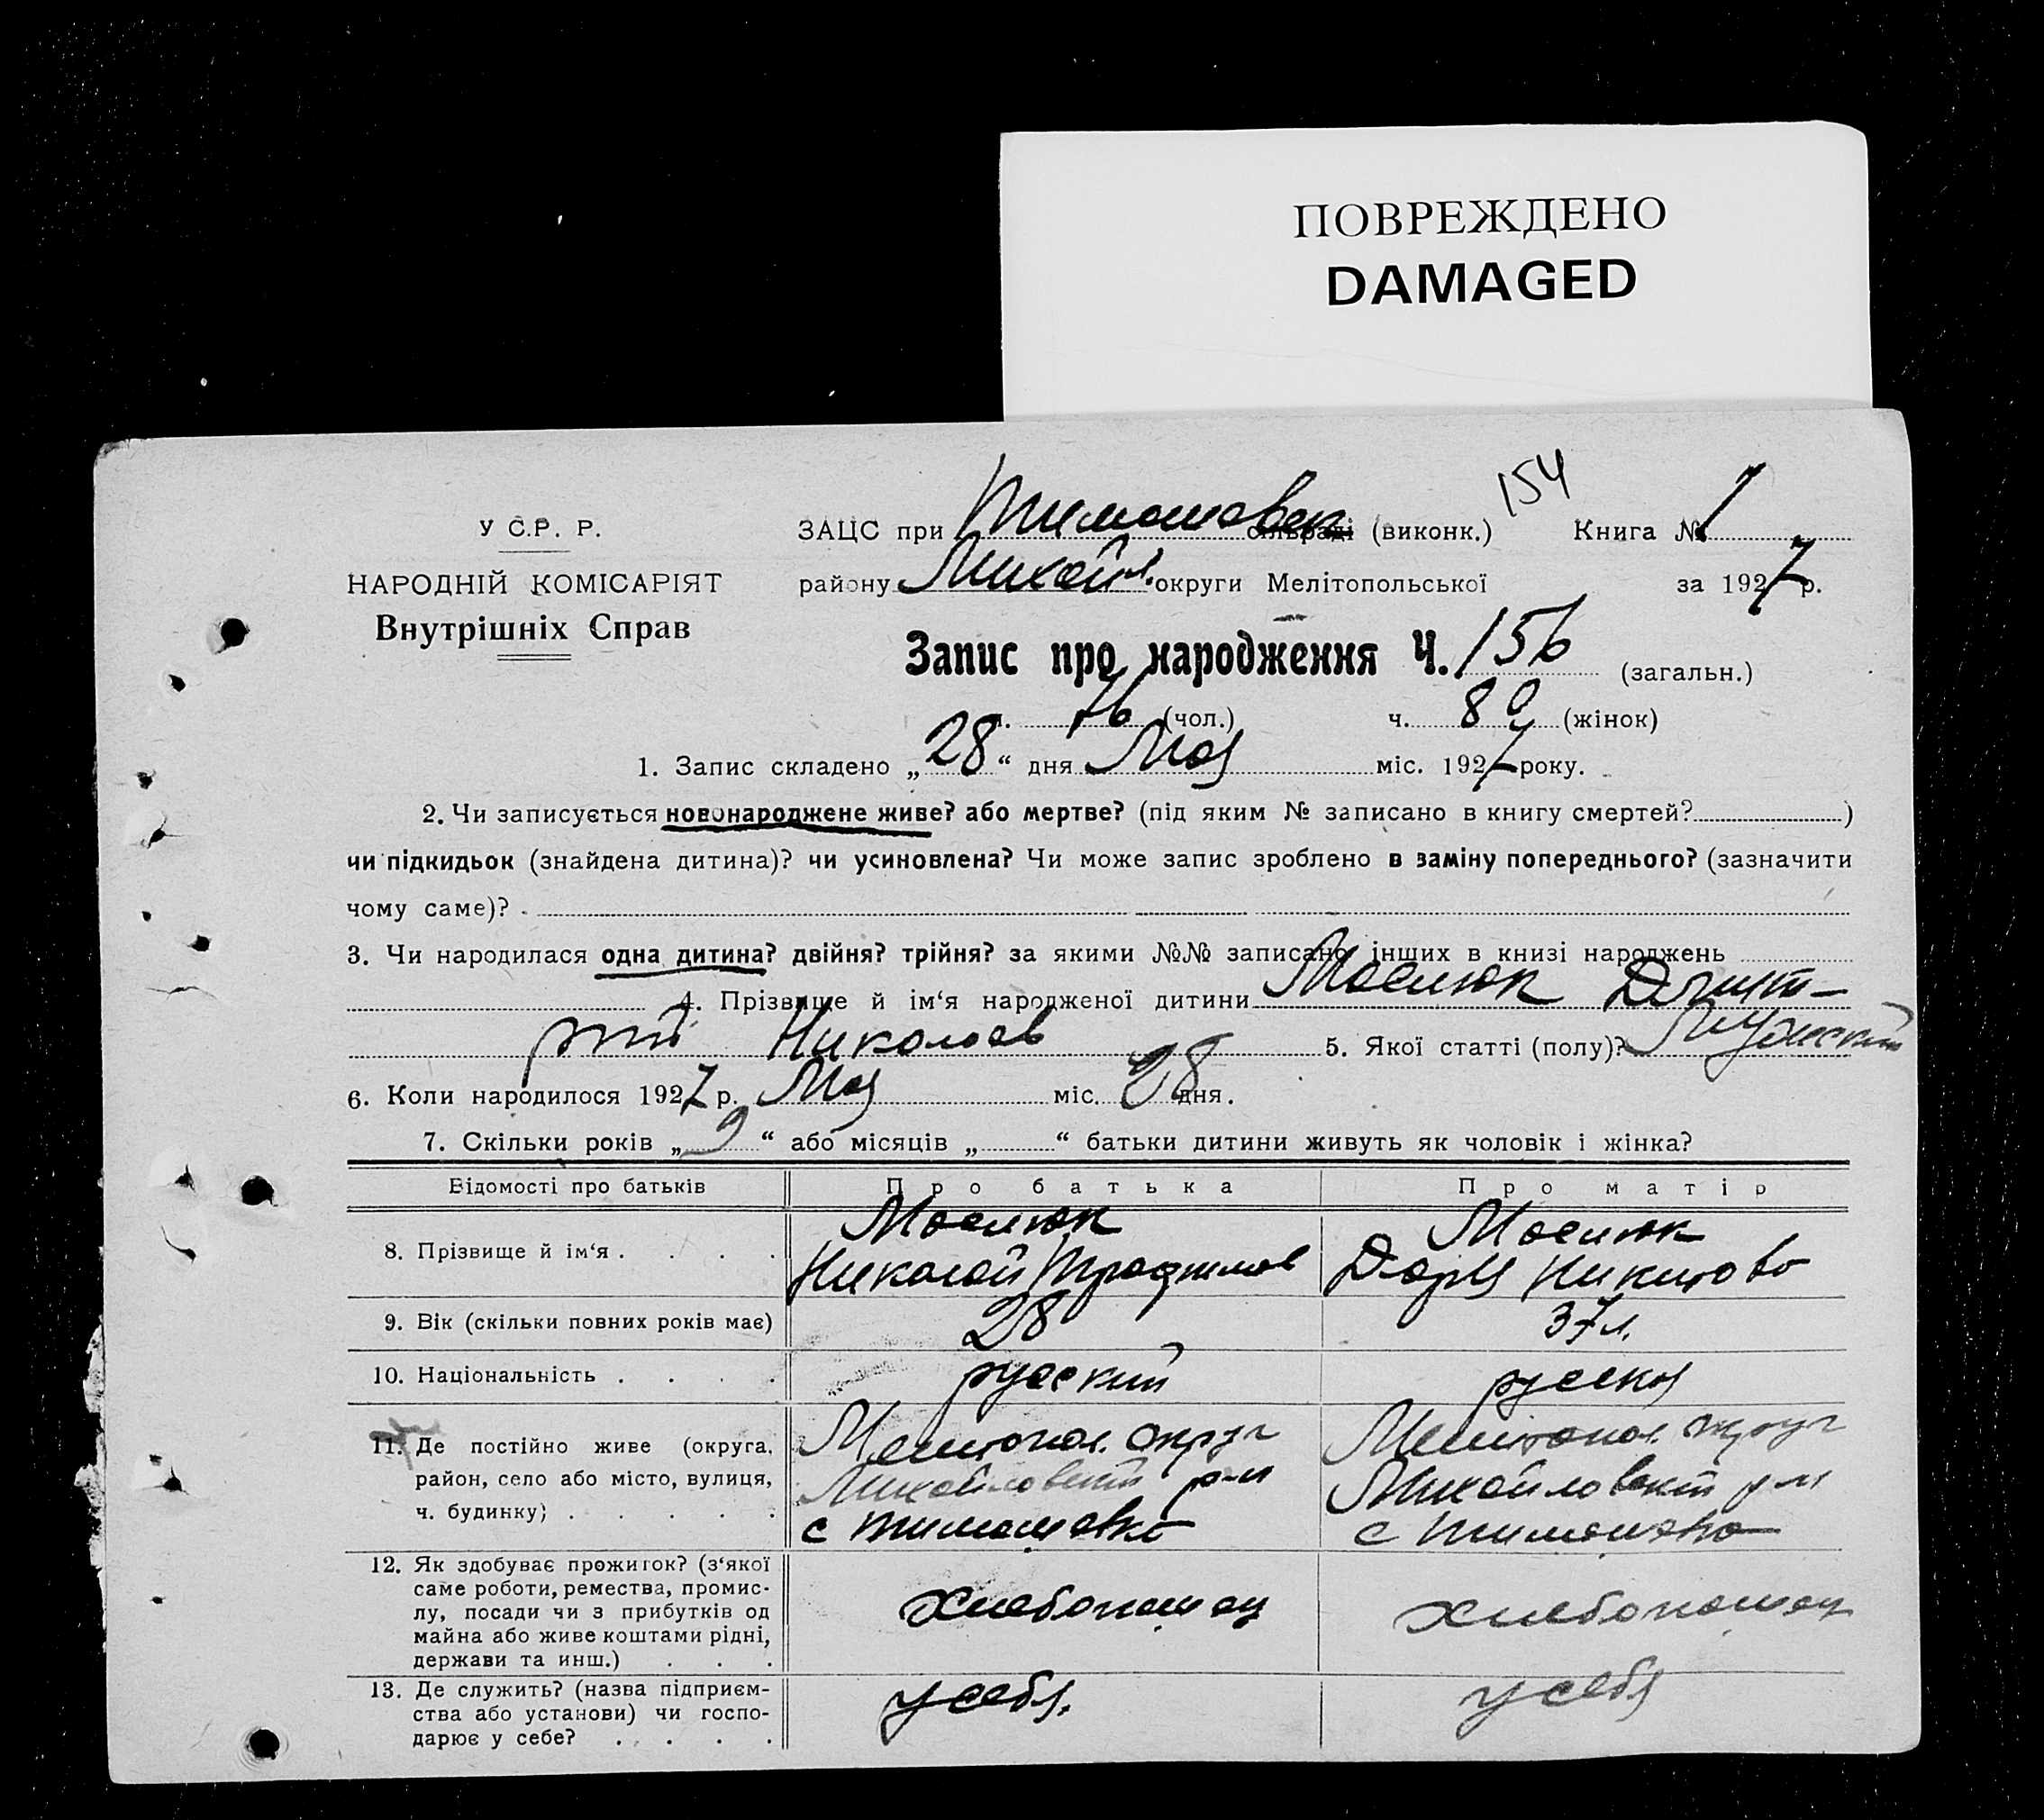 ПОВРЕЖДЕНО
DAMAGED
154
У С.Р. Р.
НАРОДНІЙ КОМІСАРІЯТ
Внутрішніх Справ
ЗАЦС при Тимошовск сільраді (виконк.) Книга № 1
району Михайл. округи Мелітопольської за 1927 р.
Запис про народження Ч. 156 (загальн.)
ч. 76 (чол.) ч. 80 (жінок)
1. Запис складено „28“ дня Мая міс. 1927 року.
2. Чи записується новонароджене живе? або мертве? (під яким № записано в книгу смертей? )
чи підкидьок (знайдена дитина)? чи усиновлена? Чи може запис зроблено в заміну попереднього? (зазначити
чому саме)?
3. Чи народилася одна дитина? двійня? трійня? за якими №№ записано інших в книзі народжень
4. Прізвище й ім‘я народженої дитини Маслюк Дмит-
рий Николаев 5. Якої статті (полу)? Мужский
6. Коли народилося 1927 р. Мая міс. 28 дня.
7. Скільки років „9“ або місяців „ “ батьки дитини живуть як чоловік і жінка?
Відомості про батьків Про батька Про матір
8. Прізвище й ім‘я . . . . Маслюк Николай Трофимов Маслюк Дарья Никитова
9. Вік (скільки повних років має) 28 37 л.
10. Національність . . . . русский русская
11. Де постійно живе (округа, Мелитопол. округ Мелитопол. округ
район, село або місто, вулиця, Михайловский р-н Михайловский р-н
ч. будинку) . . . . . с Тимошовка с Тимошовка
12. Як здобуває прожиток? (з‘якої
саме роботи, ремества, промис-
лу, посади чи з прибутків од Хлебопашец хлебопашец
майна або живе коштами рідні,
держави та инш.) . . .
13. Де служить? (назва підприєм- у себя. у себя
ства або установи) чи госпо-
дарює у себе? . . . .